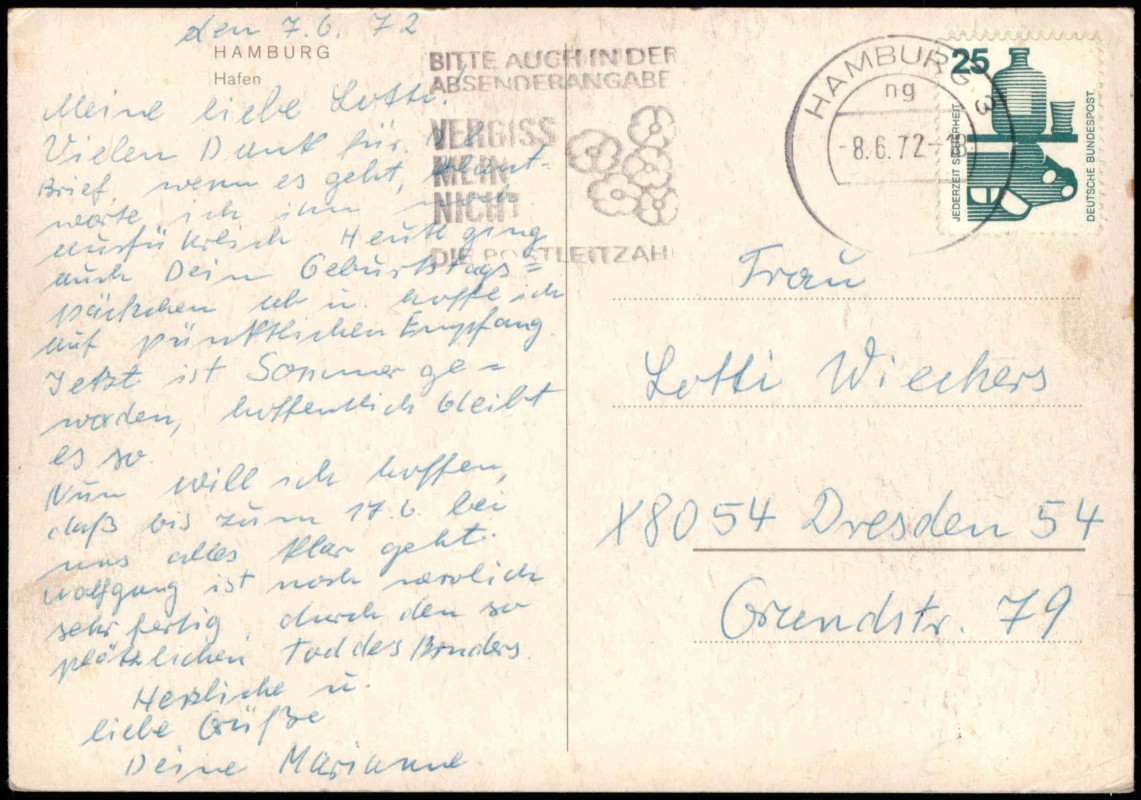 den 7.6.72
HAMBURG
Hafen
Meine liebe Lotti!
Vielen Dank für
Brief, wenn es geht, beant-
worte ich ihn noch
ausfürlich Heute ging
auch Dein Geburtstags=
päckchen ab u. hoffe ich
auf pünktlichen Empfang.
Jetzt ist Sommer ge=
worden, hoffentlich bleibt
es so.
Nun will ich hoffen,
daß bis zum 17.6. bei
uns alles klar geht.
Wolfgang ist noch nervlich
sehr fertig, durch den so
plötzlichen Tod des Bruders.
Herzliche u.
liebe Grüße
Deine Marianne
BITTE AUCH IN DER
ABSENDERANGABE
VERGISS
MEIN
NICHT
DIE POSTLEITZAHL
HAMBURG
ng
-8.6.72-18
25
JEDERZEIT SICHERHEIT
DEUTSCHE BUNDESPOST
Frau
Lotti Wiechers
X8054 Dresden 54
Grundstr. 79